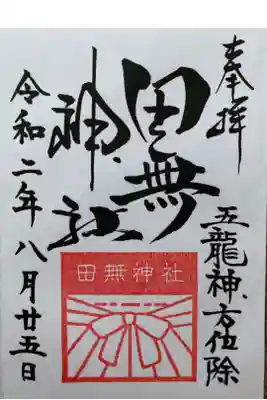 奉拝
五龍神方位除
田無
神社
令和二年八月廿五日
田無神社